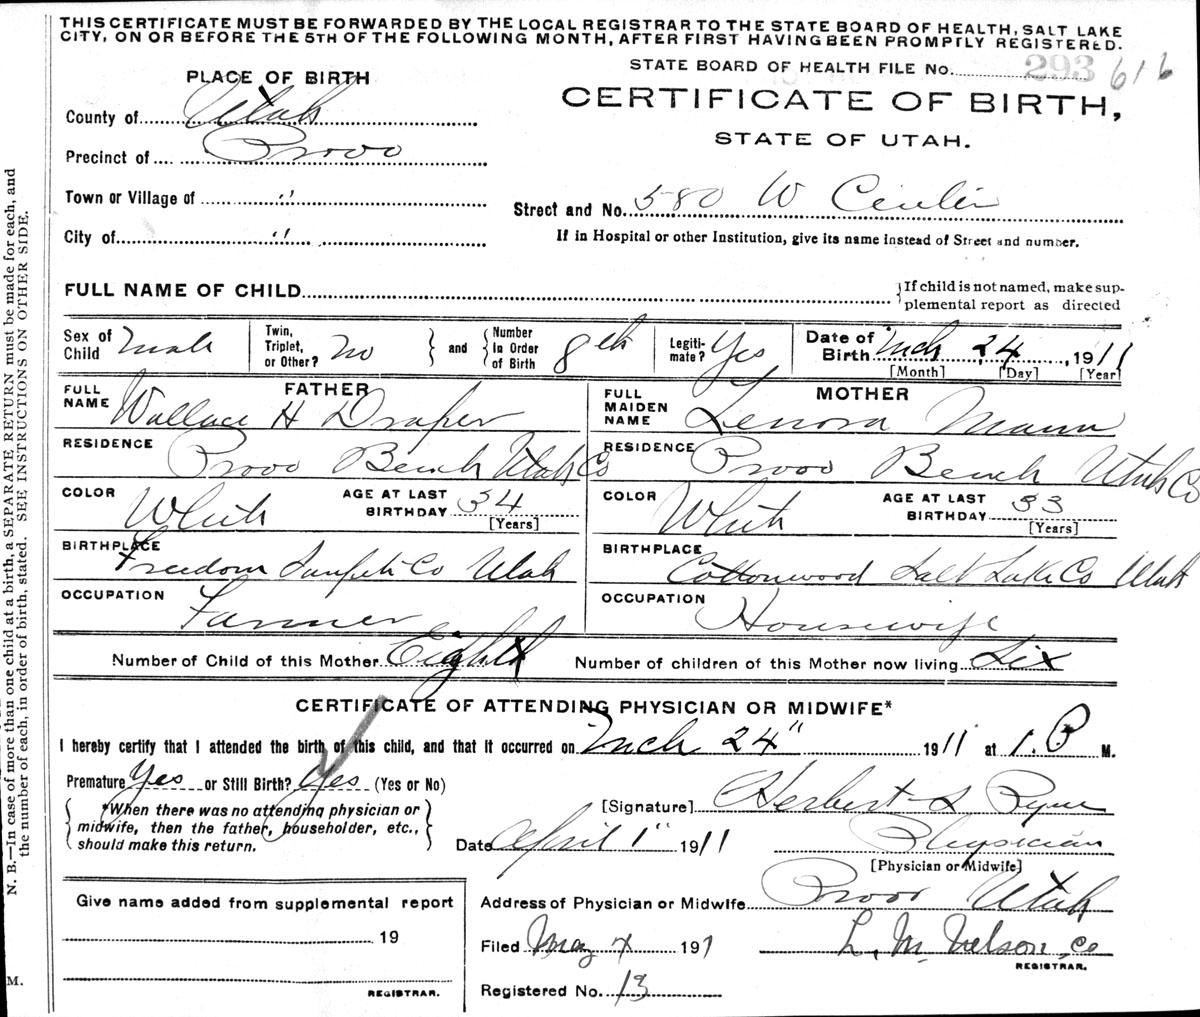 THIS CERTIFICATE MUST BE FORWARDED BY THE LOCAL REGISTRAR TO THE STATE BOARD OF HEALTH, SALT LAKE
CITY, ON OR BEFORE THE 5TH OF THE FOLLOWING MONTH, AFTER FIRST HAVING BEEN PROMPTLY REGISTERED.
STATE BOARD OF HEALTH FILE No. 293 616
PLACE OF BIRTH
CERTIFICATE OF BIRTH,
STATE OF UTAH.
County of Utah
Precinct of Provo
Town or Village of "
Street and No. 580 W Center
City of "
If in Hospital or other Institution, give its name instead of Street and number.
FULL NAME OF CHILD
If child is not named, make sup-
plemental report as directed
Sex of Child Male
Twin, Triplet, or Other? No
and
Number In Order of Birth 8th
Legiti-mate? Yes
Date of Birth Mch 24, 1911
[Month] [Day] [Year]
FATHER
FULL NAME Wallace H Draper
RESIDENCE Provo Bench Utah Co
COLOR White AGE AT LAST BIRTHDAY 34 [Years]
BIRTHPLACE Freedom Sanpete Co Utah
OCCUPATION Farmer
MOTHER
FULL MAIDEN NAME Lenora Mann
RESIDENCE Provo Bench Utah Co
COLOR White AGE AT LAST BIRTHDAY 33 [Years]
BIRTHPLACE Cottonwood Salt Lake Co Utah
OCCUPATION Housewife
Number of Child of this Mother Eighth Number of children of this Mother now living Six
CERTIFICATE OF ATTENDING PHYSICIAN OR MIDWIFE*
I hereby certify that I attended the birth of this child, and that it occurred on Mch 24" 1911 at 1. P M.
Premature Yes or Still Birth? Yes (Yes or No)
*When there was no attending physician or
midwife, then the father, householder, etc.,
should make this return.
[Signature] Herbert S Pyne
Date April 1" 1911 Physician
[Physician or Midwife]
Address of Physician or Midwife Provo Utah
Give name added from supplemental report
19
REGISTRAR.
Filed May 4 191 L. M. Nelson, Co
REGISTRAR.
Registered No. 13
N. B.—In case of more than one child at a birth, a SEPARATE RETURN must be made for each, and
the number of each, in order of birth, stated. SEE INSTRUCTIONS ON OTHER SIDE.
M.